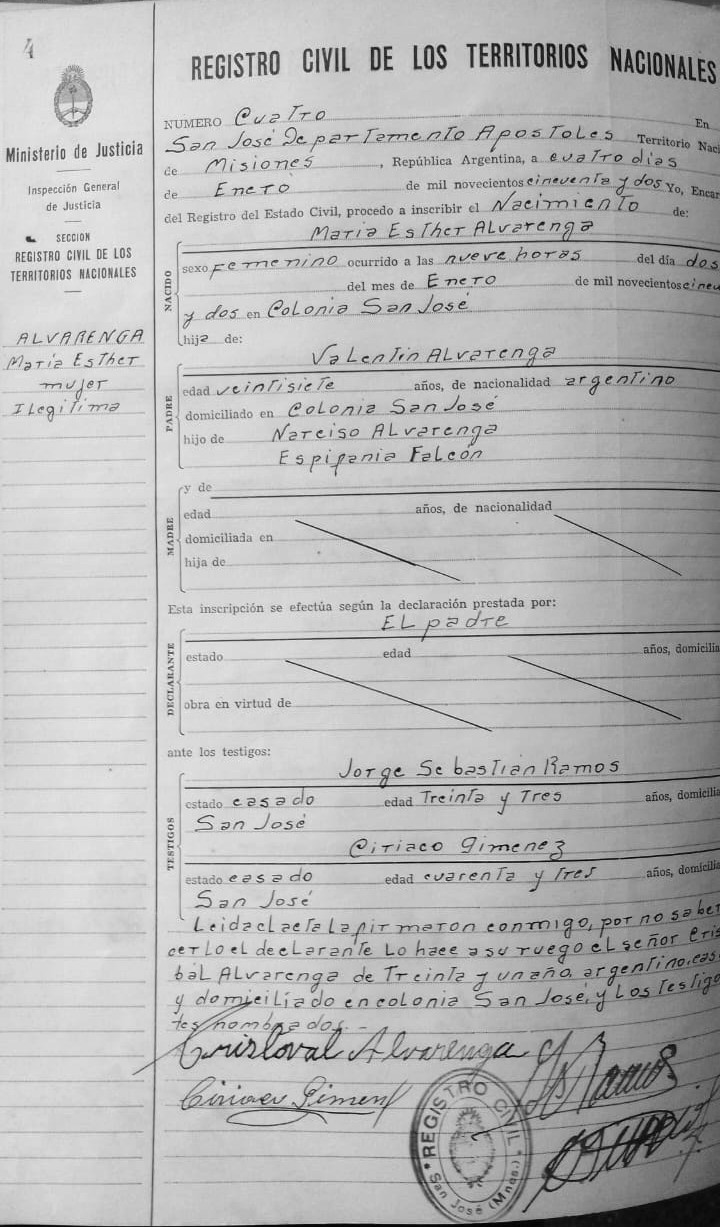 4
Ministerio de Justicia
Inspección General
de Justicia
SECCION
REGISTRO CIVIL DE LOS
TERRITORIOS NACIONALES
ALVARENGA
María Esther
mujer
Ilegítima
REGISTRO CIVIL DE LOS TERRITORIOS NACIONALES
NUMERO Cuatro En
San José Departamento Apostoles Territorio Naci
de Misiones, República Argentina, a cuatro días
de Enero de mil novecientos cincuenta y dos Yo, Encar
del Registro del Estado Civil, procedo a inscribir el Nacimiento de:
NACIDO
María Esther Alvarenga
sexo Femenino ocurrido a las nueve horas del día dos
del mes de Enero de mil novecientos cincu
y dos en Colonia San José
hija de:
PADRE
Valentín Alvarenga
edad veintisiete años, de nacionalidad argentino
domiciliado en Colonia San José
hijo de Narciso Alvarenga
Espifania Falcón
MADRE
y de
edad años, de nacionalidad
domiciliada en
hija de
Esta inscripción se efectúa según la declaración prestada por:
El padre
DECLARANTE
estado edad años, domicilia
obra en virtud de
ante los testigos:
TESTIGOS
Jorge Sebastián Ramos
estado casado edad Treinta y Tres años, domicilia
San José
Ciriaco Gimenez
estado casado edad cuarenta y tres años, domicilia
San José
Leida el acta la firmaron conmigo, por no saber
cerlo el declarante lo hace a su ruego el señor Cris
bál Alvarenga de Treinta y un año, argentino, cas
y domiciliado en colonia San José, y los testigo
tes nombrados.-
Crisloval Alvarenga
Ramos
Ciriaco Gimen
REGISTRO CIVIL
San José (Mnes.)